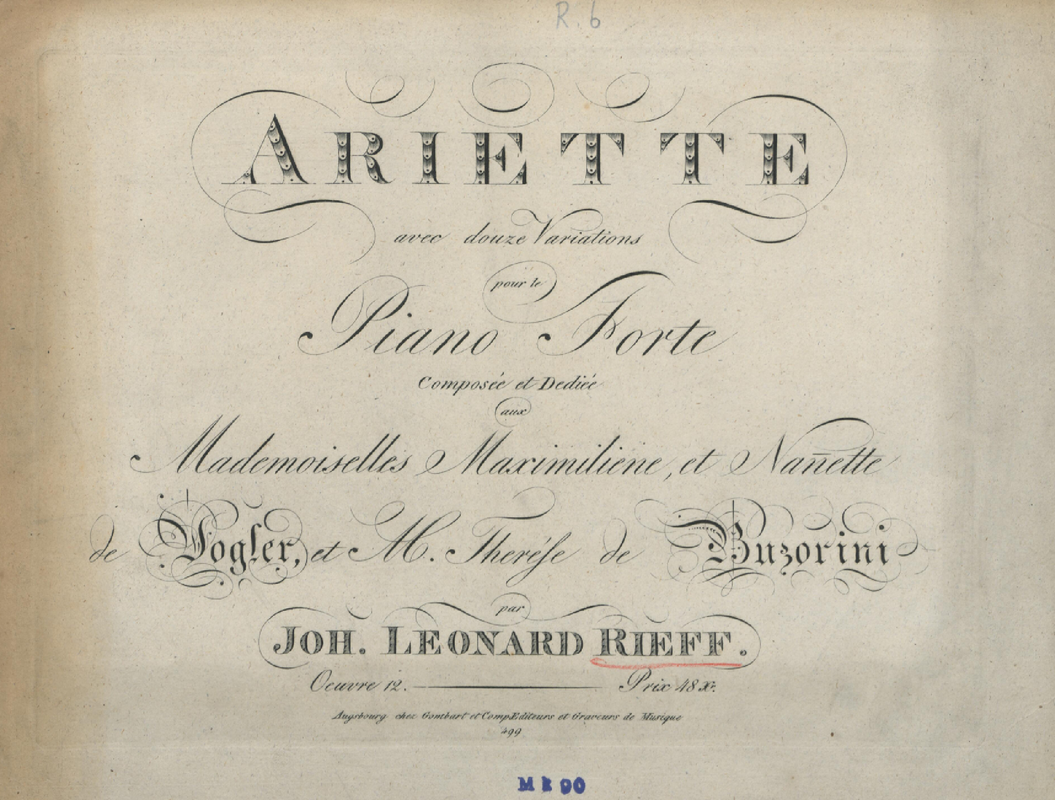 R. 6
ARIETTE
avec douze Variations
pour le
Piano Forte
Composée et Dediée
aux
Mademoiselles Maximiliene, et Nan̄ette
de Vogler, et M. Theréſe de Buzorini
par
JOH. LEONARD RIEFF.
Oeuvre 12. Prix 48 Xr.
Augsbourg chez Gombart et Comp. Editeurs et Graveurs de Musique
499
M k 90